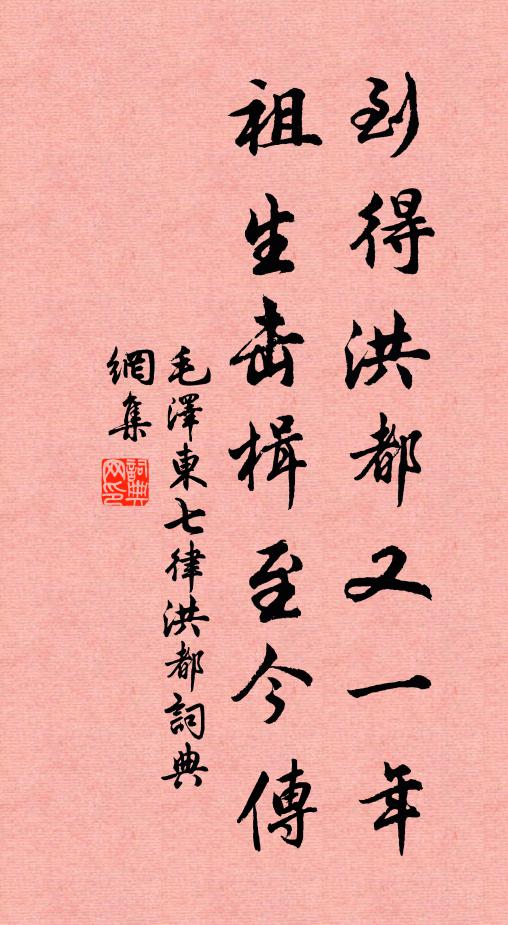 到得洪都又一年
祖生击楫至今傳
毛澤東七律洪都詞典
網集
詞典
网印